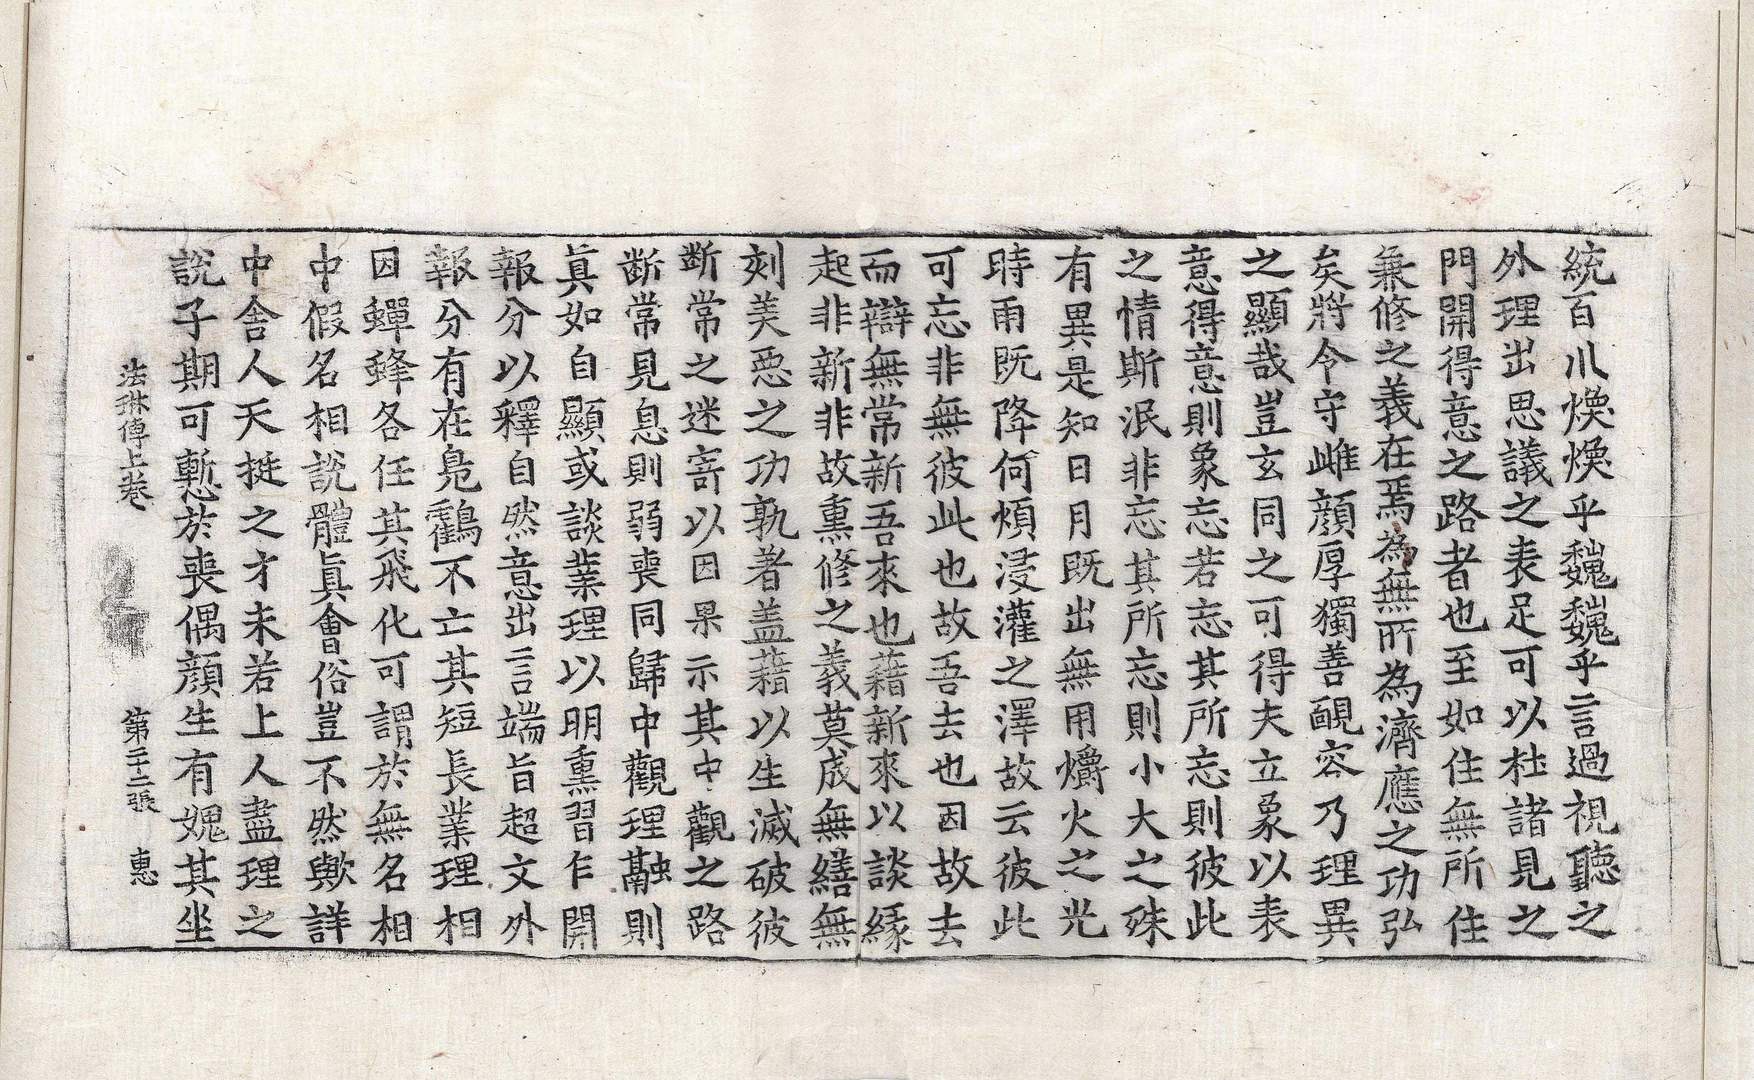 統百川煥煥乎魏魏乎言過視聽之
外理出思議之表足可以杜諸見之
門開得意之路者也至如住無所住
兼修之義在焉為無所為濟應之功弘
矣將令守雌顔厚獨善靦容乃理異
之顯哉豈玄同之可得夫立象以表
意得意則象忘若忘其所忘則彼此
之情斯泯非忘其所忘則小大之殊
有異是知日月既出無用爝火之光
時雨既降何煩浸灌之澤故云彼此
可忘非無彼此也故吾去也因故去
而辯無常新吾來也藉新來以談緣
起非新非故熏修之義莫成無繕無
刻美惡之功孰著盖藉以生滅破彼
斷常之迷寄以因果示其中觀之路
斷常見息則弱喪同歸中觀理融則
眞如自顯或談業理以明熏習乍開
報分以釋自然意出言端旨超文外
報分有在凫鶴不亡其短長業理相
因蟬蜂各任其飛化可謂於無名相
中假名相說體眞會俗豈不然歟詳
中舍人天挺之才未若上人盡理之
說子期可慙於喪偶顔生有媿其坐
法琳傳上卷 第二十二張 惠